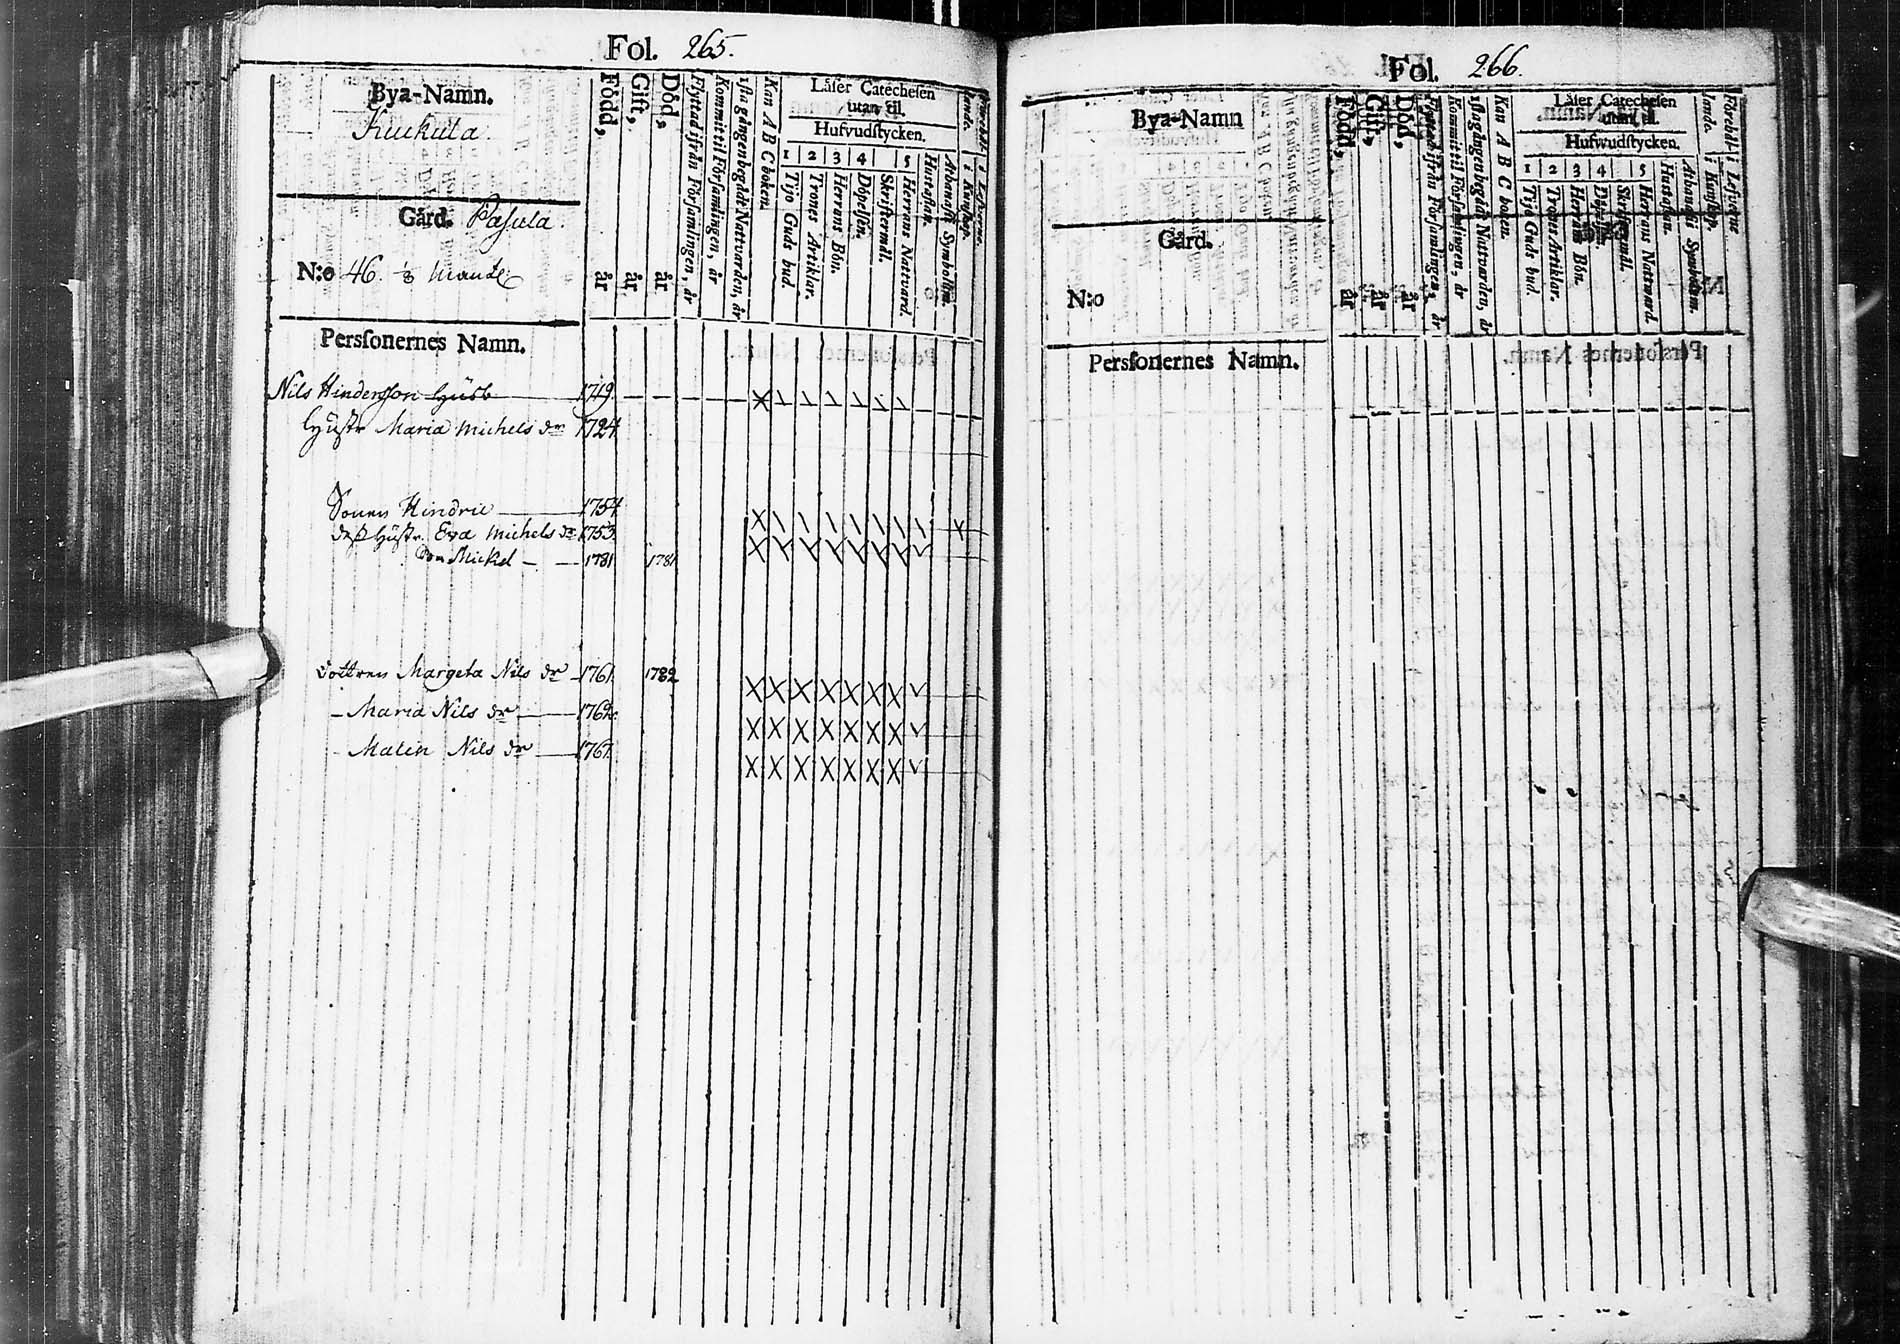 Fol. 265.
Bya-Namn.
Kuukula.
Gård. Pasula.
N:o 46. 1/8 Mantl:
Född, år
Gift, år
Död, år
Flyttad ifrån Församlingen, år
Kommit til Församlingen, år
1sta gången begådt Nattvarden, år
Kan A B C boken.
Läser Catechesen
utan til.
Hufvudstycken.
1 2 3 4 5
Tijo Guds bud.
Trones Artiklar.
Herrans Bön.
Döpelsen.
Skriftermål.
Herrans Nattvard.
Hustaflan.
Athanasii Symbolum.
Personernes Namn.
Nils Hindersson Husb 1719.
Hustr Maria Michels dr 1724.
Sonen Hindric 1754
dess hustr. Eva Michels dr 1753.
Son Mickel 1781 1781
dottren Margeta Nils dr 1761. 1782
Maria Nils dr 1764.
Malin Nils dr 1767.
Fol. 266.
Bya-Namn
Gård.
N:o
Född, år
Gift, år
Död, år
Flyttad ifrån Församlingen, år
Kommit til Församlingen, år
1sta gången begådt Nattvarden, år
Kan A B C boken.
Läser Catechesen
utan til.
Hufwudstycken.
1 2 3 4 5
Tijo Guds bud.
Trones Artiklar.
Herrans Bön.
Döpelsen.
Skriftermål.
Herrans Natward.
Hustaflan.
Athanasii Symbolum.
Personernes Namn.